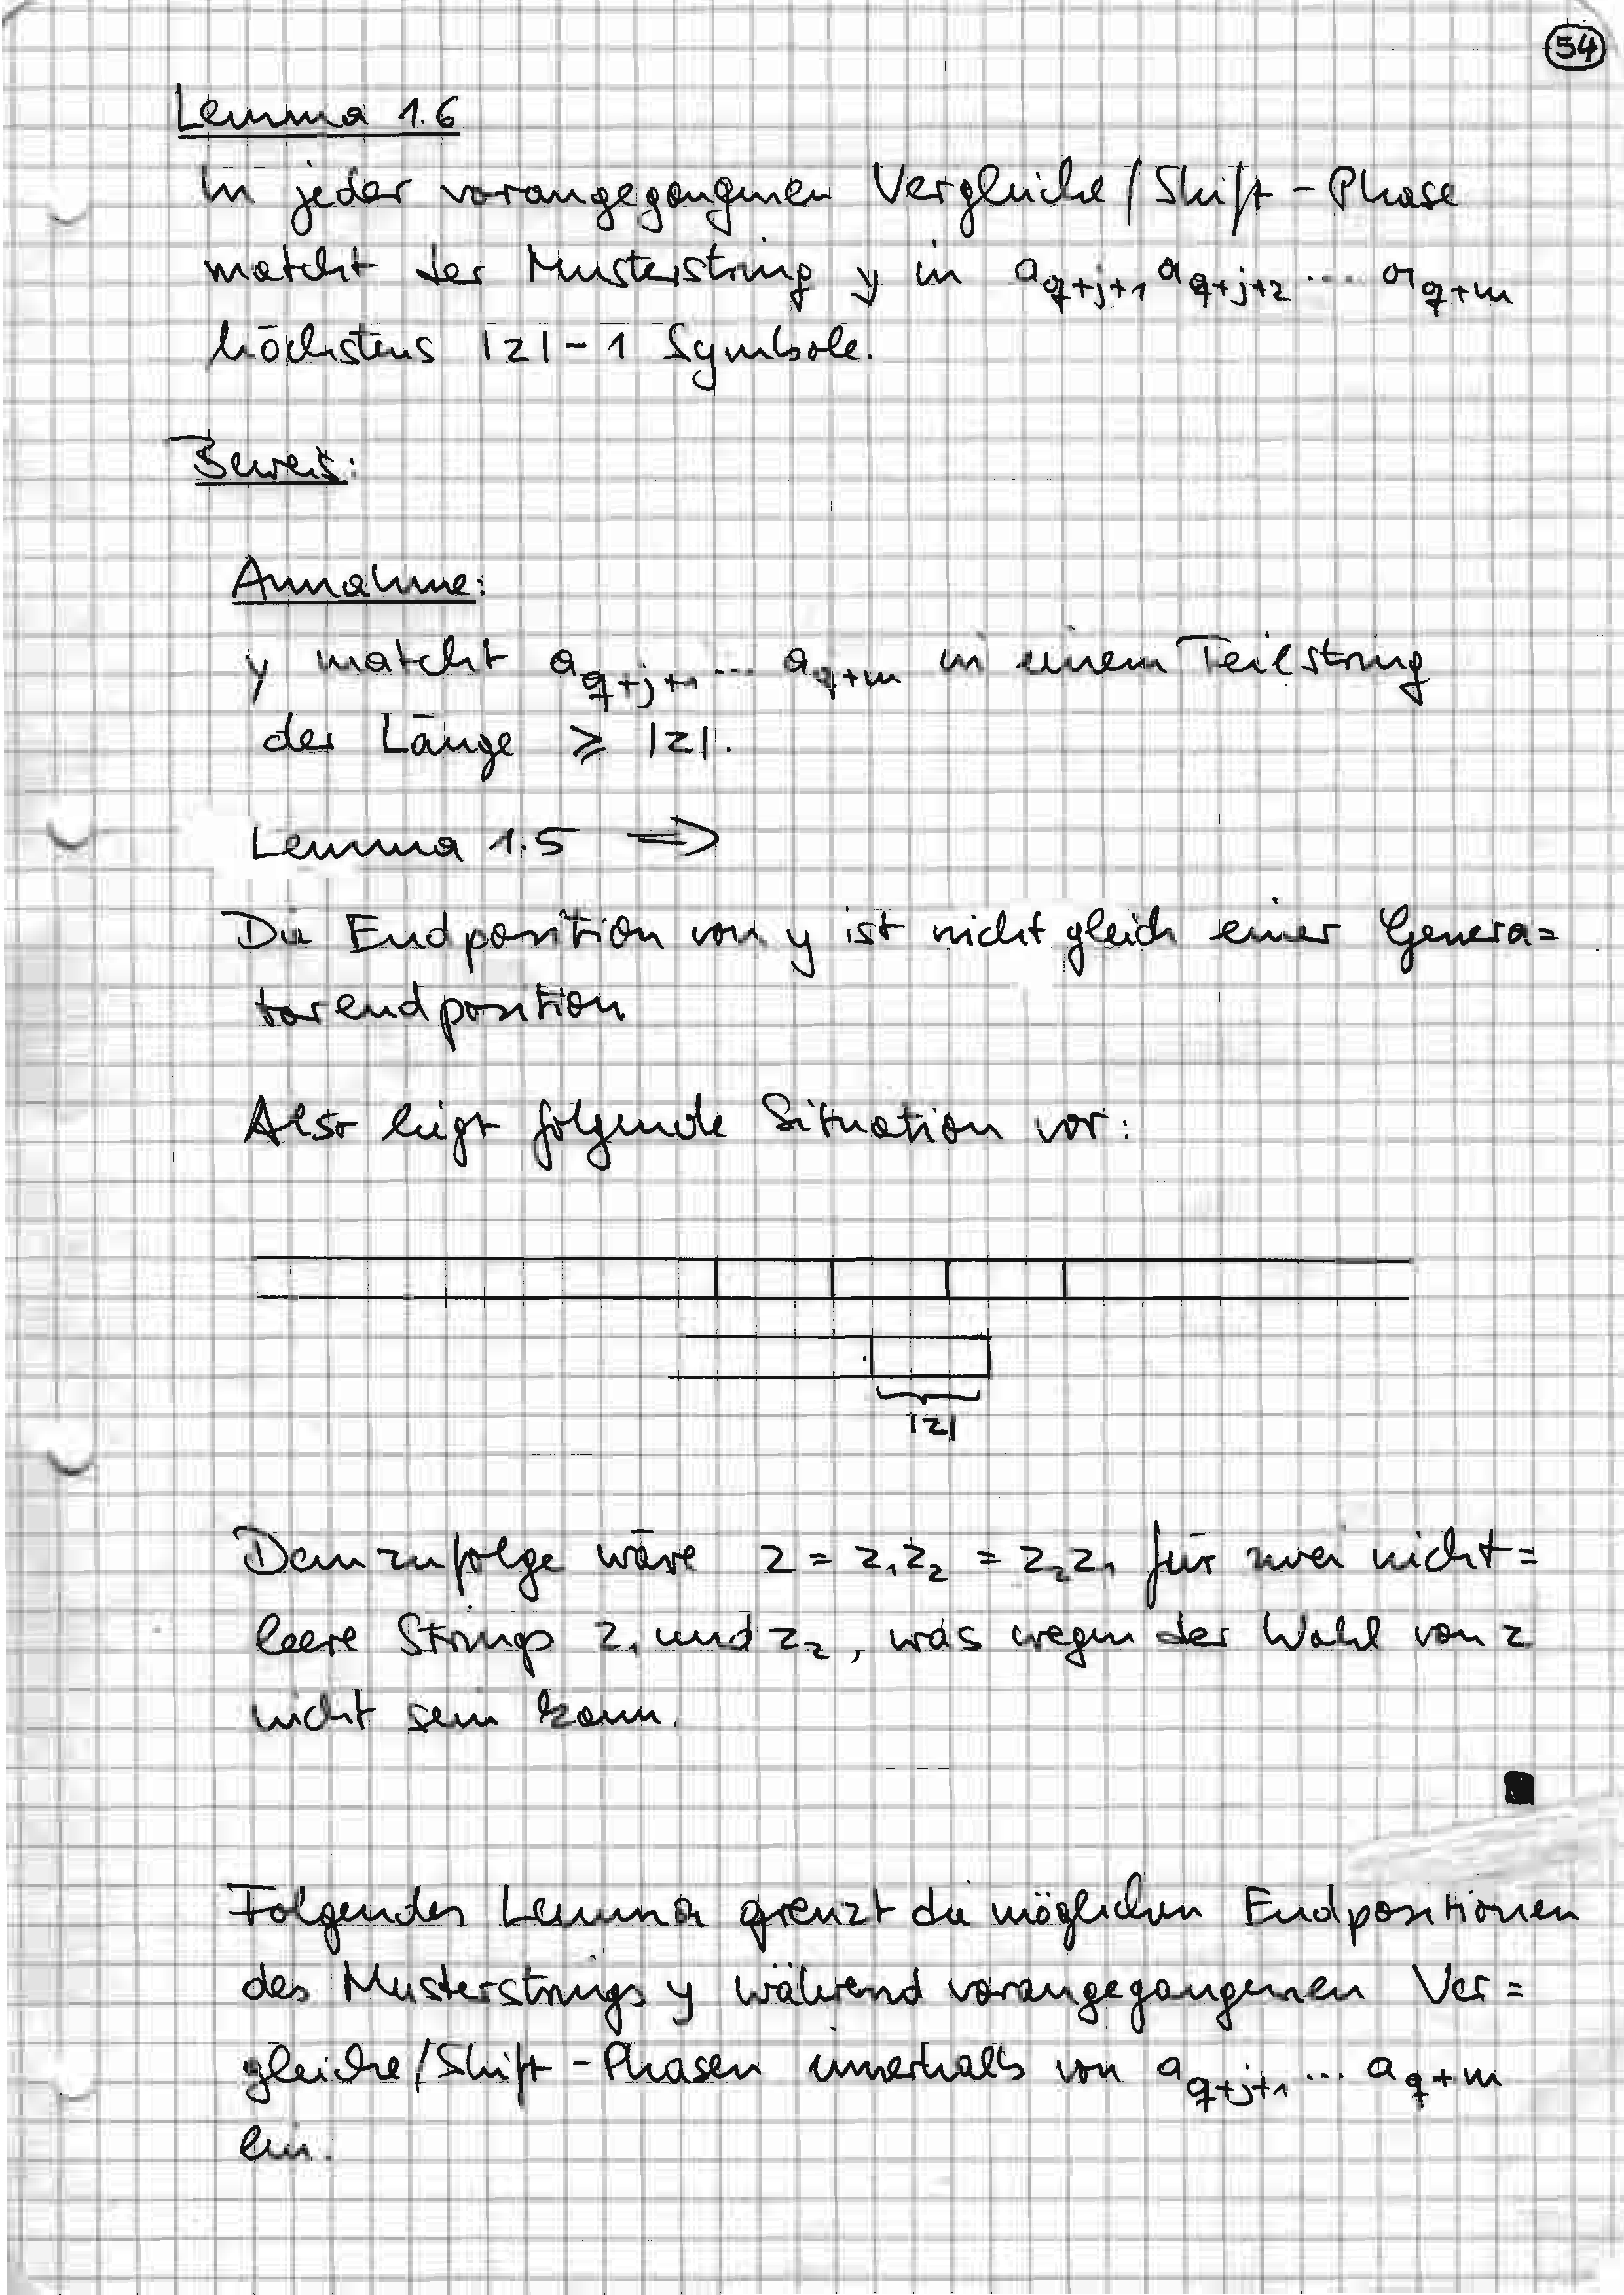 54
Lemma 1.6
In jeder vorangegangenen Vergleiche/Shift-Phase
matcht der Musterstring y in a_{q+j+1} a_{q+j+2} ... a_{q+m}
höchstens |z|-1 Symbole.
Beweis:
Annahme:
y matcht a_{q+j+1} ... a_{q+m} in einem Teilstring
der Länge ≥ |z|.
Lemma 1.5 ⇒
Die Endposition von y ist nicht gleich einer Genera=
torendposition
Also liegt folgende Situation vor:
|z|
Demzufolge wäre z = z₁z₂ = z₂z₁ für zwei nicht=
leere Strings z₁ und z₂, was wegen der Wahl von z
nicht sein kann.
Folgendes Lemma grenzt die möglichen Endpositionen
des Musterstrings y während vorangegangenen Ver=
gleiche/Shift-Phasen innerhalb von a_{q+j+1} ... a_{q+m}
ein.